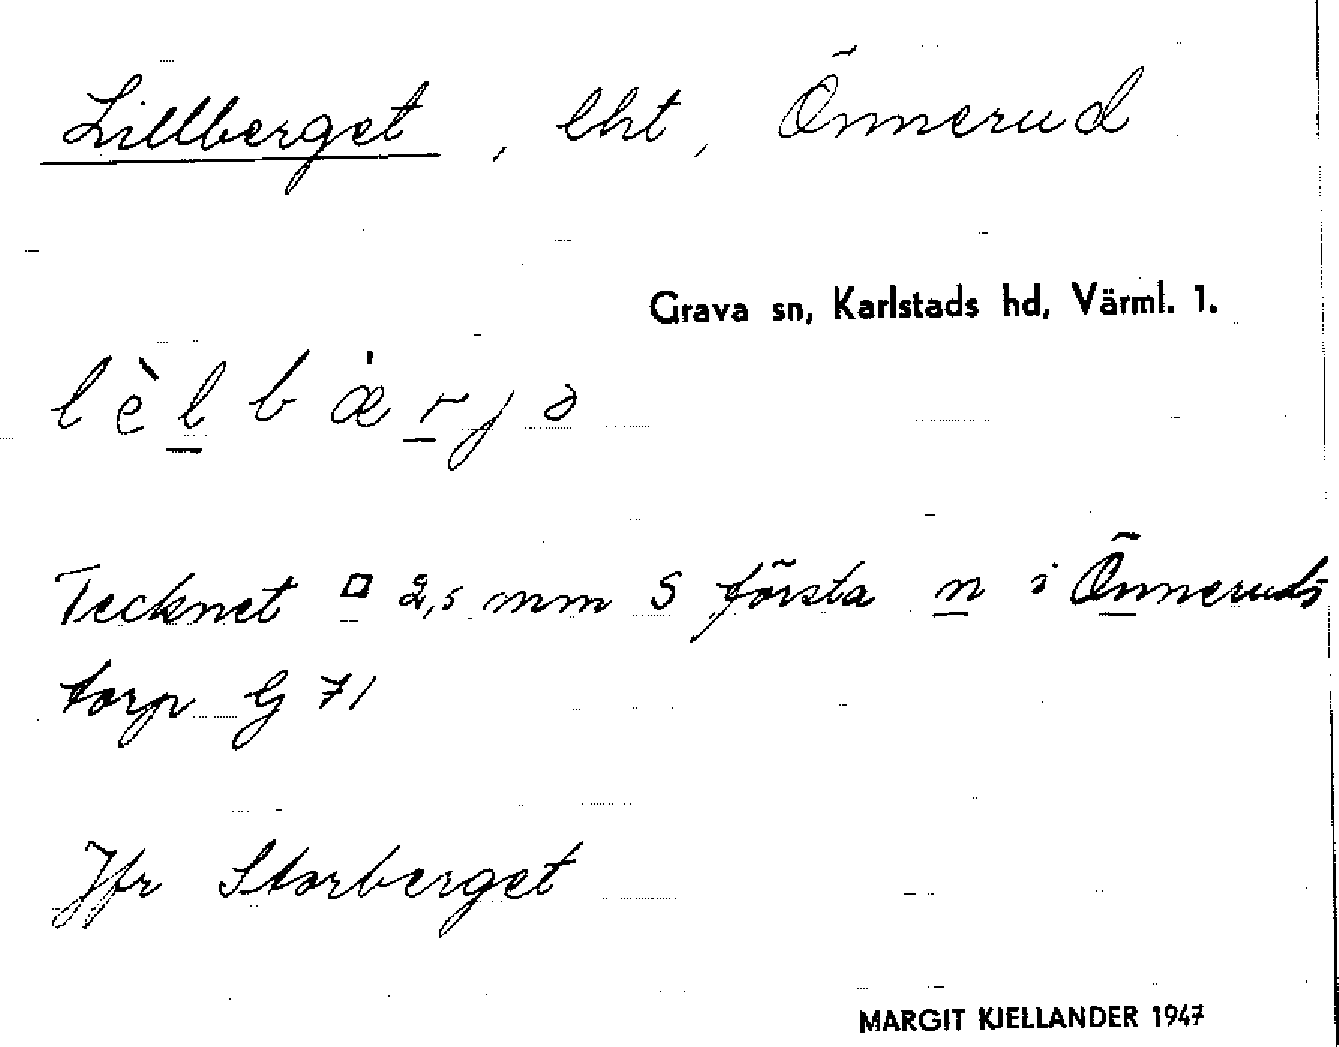 Lillberget, lht, Önnerud
Grava sn, Karlstads hd, Värml. 1.
lèlbæ̍rjə
Tecknet □ 2,5 mm S första n i Önneruds
torp G 71
Jfr Storberget
MARGIT KJELLANDER 1947